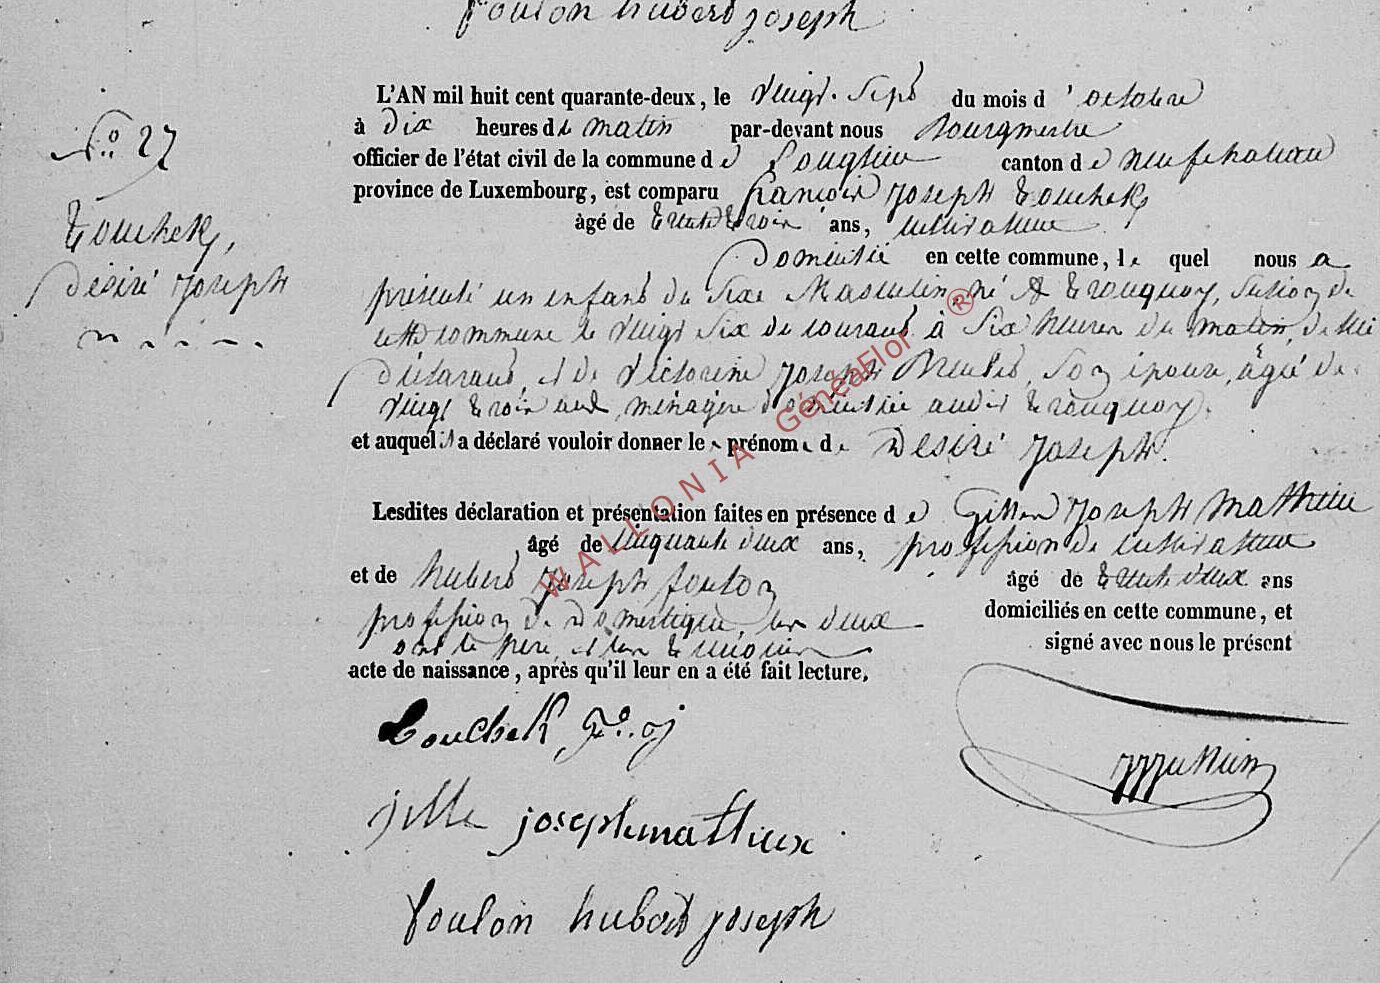 foulon hubert joseph
L'AN mil huit cent quarante-deux, le Vingt-Sept du mois d'octobre
N° 27
à Dix heures de matin par-devant nous Bourgmestre
officier de l'état civil de la commune de Longlier canton de neufchateau
province de Luxembourg, est comparu françois Joseph Touchek
Touchek,
Désiré Joseph
âgé de trente trois ans, cultivateur
Domicilié en cette commune, le quel nous a
présenté un enfant du Sexe Masculin, né A tronquoy, Section de
cette commune le vingt Six du courant à Six heures du matin, de lui
Déclarant, et de Victorine Joseph, Son épouse, âgée de
vingt trois ans, ménagère domiciliée audit tronquoy.
et auquel il a déclaré vouloir donner les prénoms de Désiré Joseph.
Lesdites déclaration et présentation faites en présence de Gille Joseph Mathieu
âgé de Cinquante deux ans, profession de cultivateur
et de hubert Joseph foulon âgé de trente deux ans
profession de Domestique, les deux domiciliés en cette commune, et
ont le père, et les témoins signé avec nous le présent
acte de naissance, après qu'il leur en a été fait lecture.
Touchek fs. j
jille josephmathieux
foulon hubert joseph
WALLONIA GénéaFlor ®